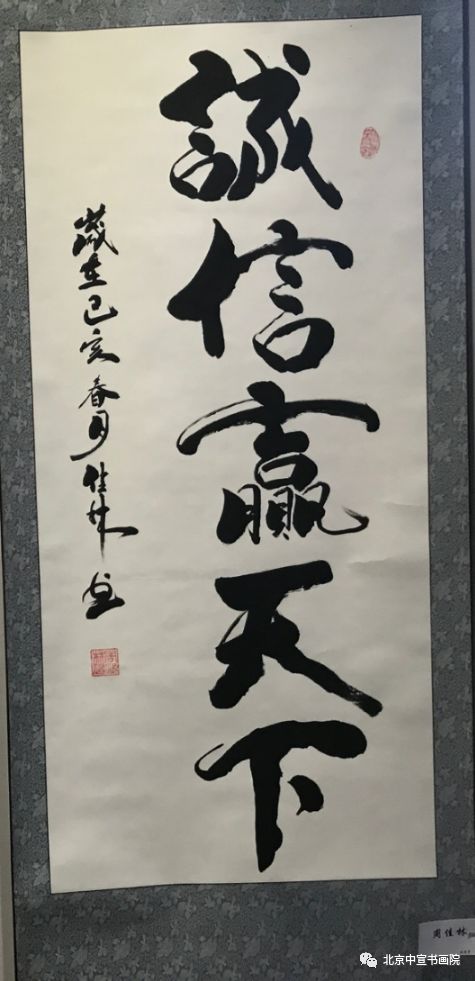 誠信贏天下
歲在己亥春月佳林书
周佳林
北京中宣书画院